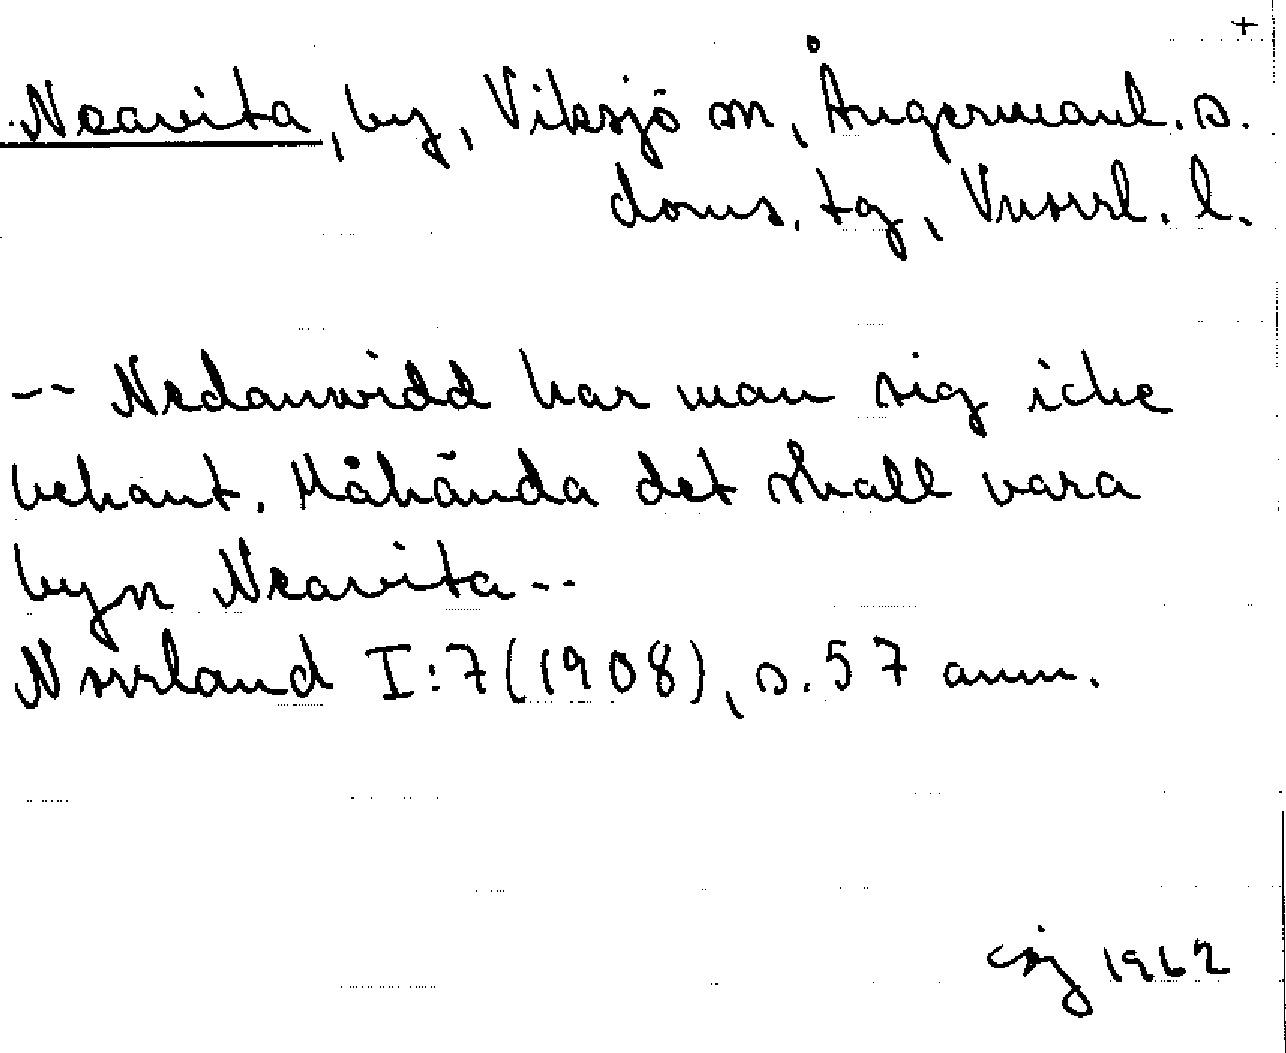 +
Neavita, by, Viksjö sn, Ångermanl. s.
doms. tg, Vnorrl. l.
-- Nedanvidd har man sig icke
bekant. Måhända det skall vara
byn Neavita --
Norrland I:7 (1908), s. 57 anm.
csj 1962